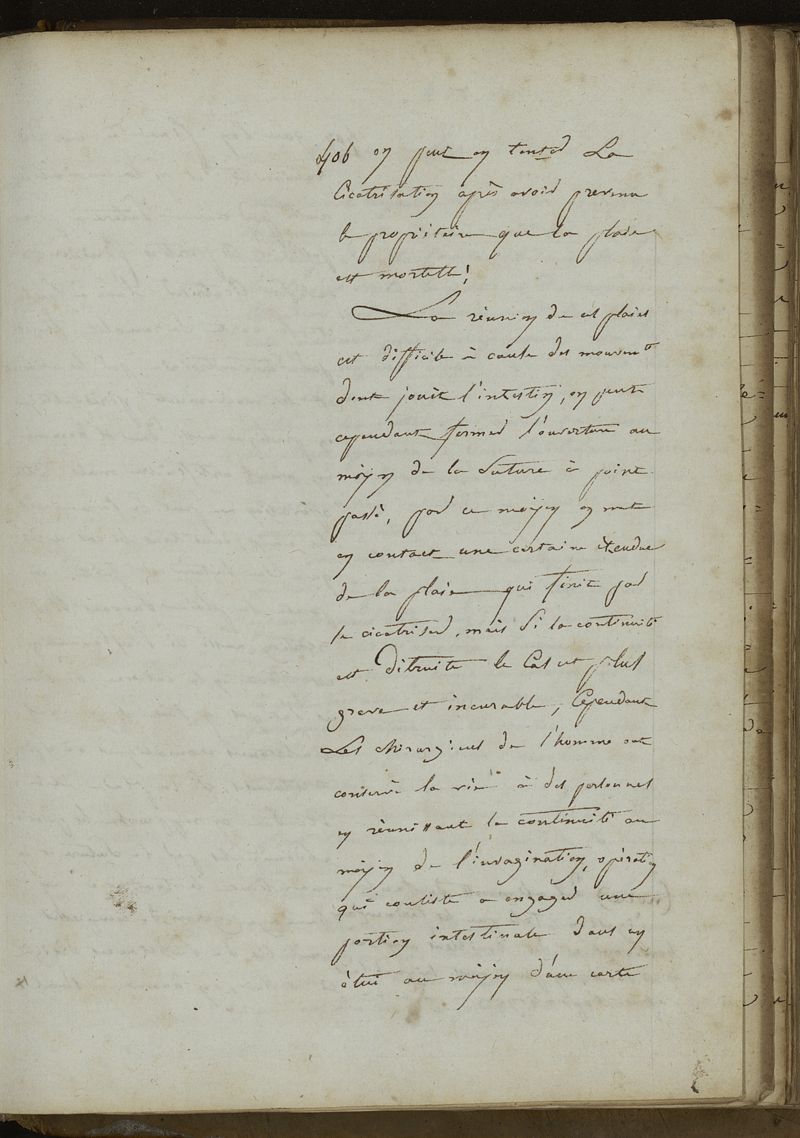 406 on peut en tenter La
Cicatrisation après avoir prevenu
le propriétaire que la plaie
est mortelle;
La réunion de ces plaies
est difficile à cause des mouvemts
dont jouit l'intestin, on peut
cependant fermer l'ouverture au
moyen de la Suture à point
passé, par ce moyen on met
en contact une certaine étendue
de la plaie qui finit par
se cicatriser, mais Si la continuité
est Détruite le Cas est plus
grave et incurable, Cependant
Les chirurgiens de l'homme ont
conservé la vie à des personnes
en réunissant la continuité au
moyen de l'invagination, opération
qui consiste a engager une
portion intestinale dans un
étui au moyen d'une carte